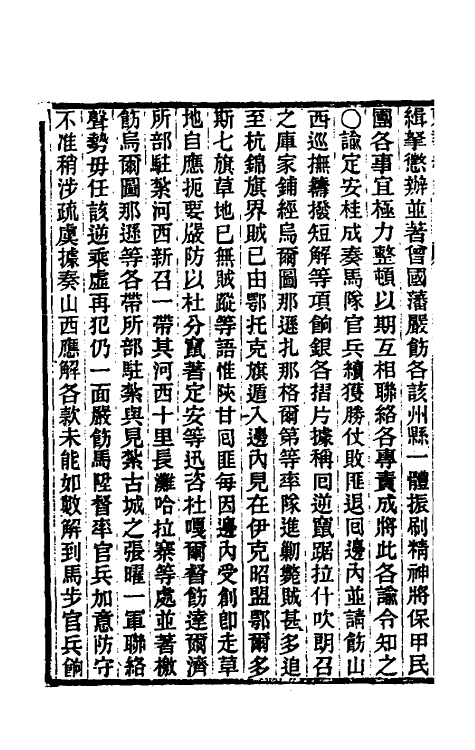 緝拏懲辦並著曾國藩嚴飭各該州縣一體振刷精神將保甲民
團各事宜極力整頓以期互相聯絡各專責成將此各諭令知之
○諭定安桂成奏馬隊官兵續獲勝仗敗匪退回邊內並請飭山
西巡撫籌撥短解等項餉銀各摺片據稱回逆竄踞拉什吹朗召
之庫家鋪經烏爾圖那遜扎那格爾第等率隊進勦斃賊甚多追
至杭錦旗界賊已由鄂托克旗遁入邊內見在伊克昭盟鄂爾多
斯七旗草地已無賊蹤等語惟陝甘回匪每因邊內受創即走草
地自應扼要嚴防以杜分竄著定安等迅咨杜嘎爾督飭達爾濟
所部駐紮河西新召一帶其河西十里長灘哈拉寨等處並著檄
飭烏爾圖那遜等各帶所部駐紮與見紮古城之張曜一軍聯絡
聲勢毋任該逆乘虛再犯仍一面嚴飭馬陞督率官兵加意防守
不准稍涉疏虞據奏山西應解各款未能如數解到馬步官兵餉